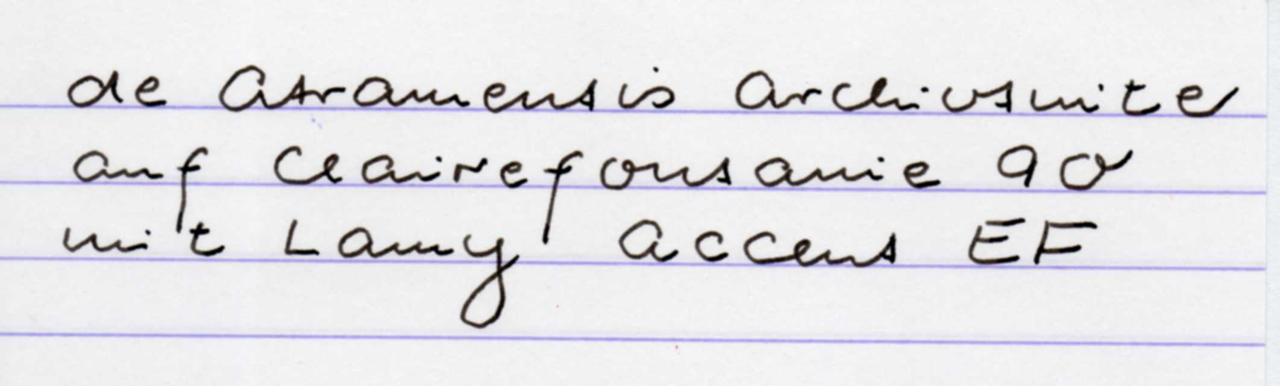 de Atramentis Archivtinte
auf Clairefontaine 90
mit Lamy Accent EF